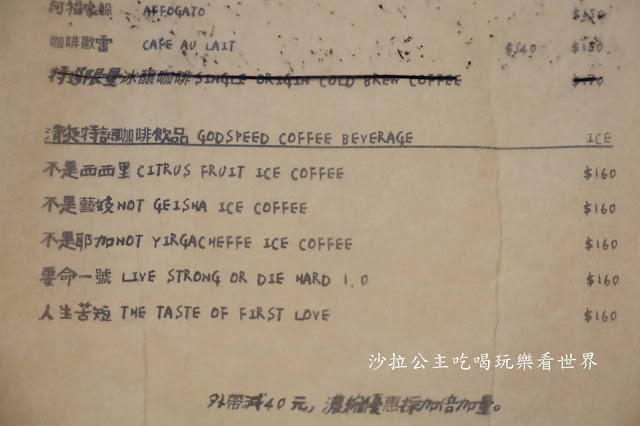 阿福家朵 AFFOGATO $150
咖啡歐蕾 CAFE AU LAIT $140 $150
特選限量冰釀咖啡 SINGLE ORIGIN COLD BREW COFFEE
清爽特調咖啡飲品 GODSPEED COFFEE BEVERAGE ICE
不是西西里 CITRUS FRUIT ICE COFFEE $160
不是藝妓 NOT GEISHA ICE COFFEE $160
不是耶加 NOT YIRGACHEFFE ICE COFFEE $160
要命一號 LIVE STRONG OR DIE HARD 1.0 $160
人生苦短 THE TASTE OF FIRST LOVE $160
沙拉公主吃喝玩樂看世界
外帶減40元，濃縮優惠採加倍加量。